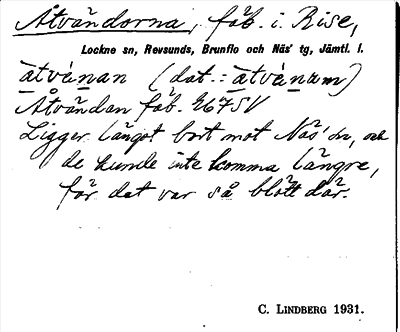 Åtvändorna, fäb. i Rise,
Lockne sn, Revsunds, Brunflo och Näs' tg, Jämtl. l.
ātvénan (dat.: ātvénam)
Åtvändan fäb. 267 SV
Ligger längst bort mot Näs sn, och
de kunde inte komma längre,
för dat var så blött där.
C. LINDBERG 1931.